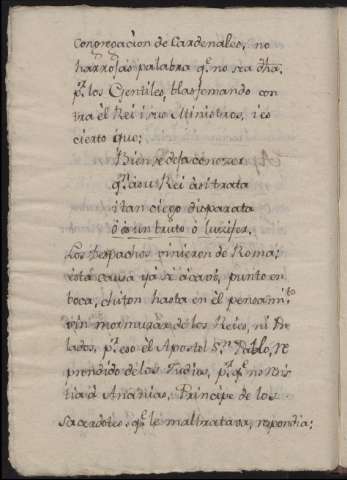 Congregacion de Cardenales, no
harrojas palabra q.e no sea dha
p.r los Gentiles, blasfemando con
tra èl Rei i sus Ministros, i es
cierto que:
Bien se deja conozer
q.n à su Rei àsi trata
i tan ciego disparata
ò es un bruto ò luzifer.
Los despachos vinieron de Roma;
està causa yà se àcavò, punto en
boca, chiton hasta en èl pensam.to
sin mormurar de los Reies, ni Pre
lados, p.r eso èl Apostol S.n Pablo, re
prendido de los Judios, p.r q.e no
à Ananias, Principe de los
Sacerdotes, q.e le maltratava, respondia: